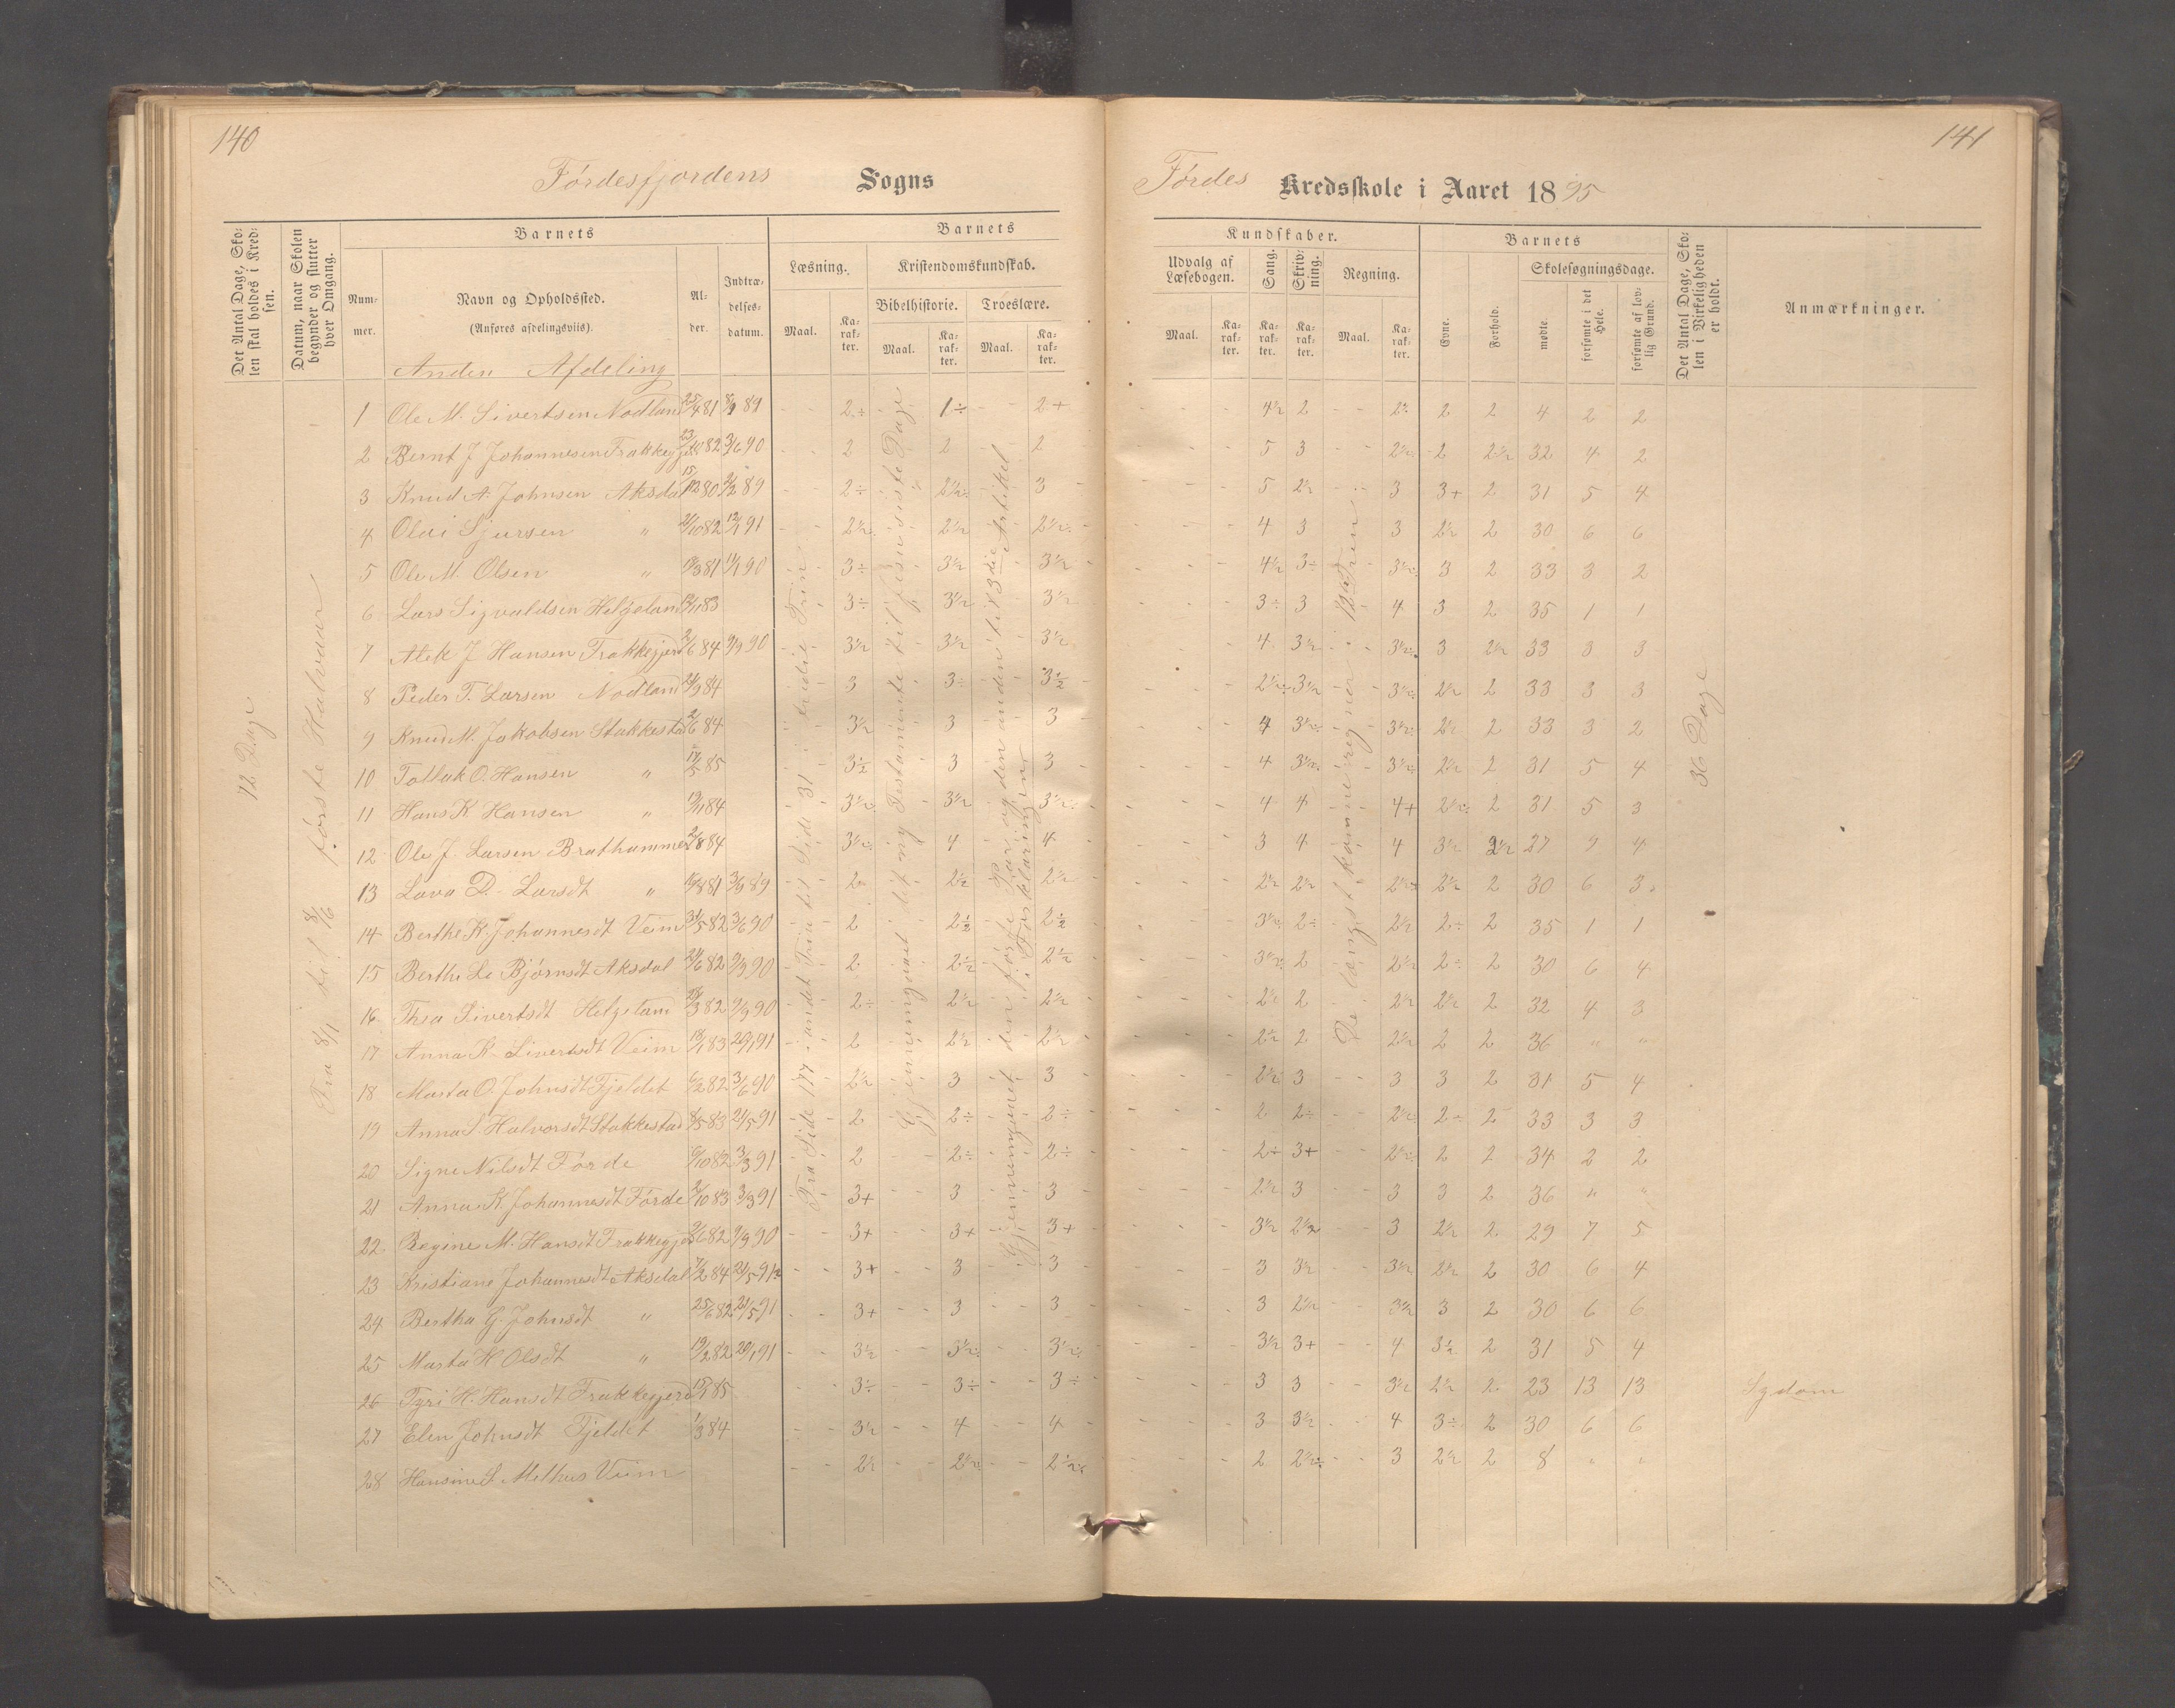 140
Førdesfjordens Sogns
Det Antal Dage, Sko-
len skal holdes i Kred-
sen.
Datum, naar Skolen
begynder og slutter
hver Omgang.
Barnets
Num-
mer.
Navn og Opholdssted.
(Anføres afdelingsviis).
Al-
der.
Indtræ-
delses-
datum.
Barnets
Læsning.
Maal.
Ka-
rak-
ter.
Kristendomskundskab.
Bibelhistorie.
Maal.
Ka-
rak-
ter.
Troeslære.
Maal.
Ka-
rak-
ter.
Anden Afdeling
72 Dage
Fra 8/1 til 8/6 første Halvaar
1 Ole M. Sivertsen Nodland 25/4 81 8/1 89 2÷ 1÷ 2+
2 Bernt J Johannesen Frakkegjerd 82 3/6 90 2 2 2
3 Knud A. Johnsen Aksdal 15/12 80 89 2÷ 2½ 3
4 Olai Sjursen " 82 12/1 91 2½ 2½ 2½
5 Ole M. Olsen " 81 90 3÷ 3½ 3½
6 Lars Sigvaldsen Helgeland 83 3÷ 3½ 3½
7 J Hansen Frakkegjerd 84 90 3½ 3½ 3½
8 Peder T. Larsen Nodland 84 3 3÷ 3½
9 Knud M. Jakobsen Stakkestad 84 3½ 3 3
10 Tollak O. Hansen " 85 3½ 3 3
11 Hans K. Hansen " 84 3½ 3½ 3½
12 Ole J. Larsen Brathammer 84 3½ 4 4
13 Lava D. Larsdt " 81 3/6 89 2 2½ 2½
14 Berthe K. Johannesdt Veim 31/5 82 3/6 90 2 2½ 2½
15 Berthe Le Bjørnsdt Aksdal 82 90 2 2½ 2½
16 Thea Sivertsdt Helgeland 82 90 2÷ 2½ 2½
17 Anna K. Sivertsdt Veim 83 91 2 2½ 2½
18 Marta O. Johnsdt Fjeldet 82 3/6 90 2½ 3 3
19 Anna S Halvorsdt Stakkestad 83 21/5 91 2 2÷ 2÷
20 Signe Nilsdt Førde 82 3/3 91 2 2÷ 2÷
21 Anna K. Johannesdt Førde 83 3/3 91 3+ 3 3
22 Regine M. Hansdt Frakkegjerd 82 90 3+ 3+ 3+
23 Kristiane Johannesdt Aksdal 84 21/5 91 3+ 3 3
24 Bertha G. Johnsdt " 25/6 82 21/5 91 3+ 3 3
25 Marta K Olsdt " 82 91 3½ 3½ 3½
26 Tyri H. Hansdt Frakkegjerd 85 3÷ 3÷ 3÷
27 Elen Johnsdt Fjeldet 1/3 84 3½ 4 4
28 Hansine S. Melhus Veim 2½ 2½ 2½
Fra Side 177 i andet Trin til Side 31 i tredie Trin
Gjennemgaaet det ny Testamente til sidste Dage
Gjennemgaaet den første Part og den anden til 3die Artikel
i Forklaringen
141
Førdes Kredsskole i Aaret 1895
Kundskaber.
Udvalg af
Læsebogen.
Maal.
Ka-
rak-
ter.
Sang.
Ka-
rak-
ter.
Skriv-
ning.
Ka-
rak-
ter.
Regning.
Maal.
Ka-
rak-
ter.
Barnets
Evne.
Forhold.
Skolesøgningsdage.
mødte.
forsømte i det
Hele.
forsømte af lov-
lig Grund.
Det Antal Dage, Sko-
len i Virkeligheden
er holdt.
Anmærkninger.
De længst komne regner i Trin
36 Dage
4½ 2 2½ 2 2 4 2 2
5 3 2½ 2 2½ 32 4 2
5 2½ 3 3+ 2 31 5 4
4 3 3 2½ 2 30 6 6
4½ 3÷ 3½ 3 2 33 3 2
3÷ 3 4 3 2 35 1 1
4 3½ 3½ 3 2½ 33 3 3
2½ 3½ 3½ 2½ 2 33 3 3
4 3½ 3½ 2½ 2 33 3 2
4 3½ 3½ 2½ 2 31 5 4
4 4 4+ 2½ 2 31 5 3
3 4 4 3½ 2½ 27 9 4
2½ 2½ 2½ 2½ 2 30 6 3
3½ 2÷ 2½ 2÷ 2 35 1 1
3½ 2 2½ 2÷ 2 30 6 4
2½ 2 2½ 2½ 2 32 4 3
2÷ 2 2½ 2 2 36 " "
2½ 3 3 3 2 31 5 4
2 2÷ 2½ 2÷ 2 33 3 3
2÷ 3+ 2½ 2 2 34 2 2
2½ 3 3 3 2 36 " "
3½ 2½ 3 2½ 2 29 7 5
3 3½ 3½ 2½ 2 30 6 4
3 2½ 3½ 3 2 30 6 6
3½ 3+ 4 3½ 2 31 5 4
3 3 3½ 2½ 2 23 13 13 Sygdom
3 3½ 4 3÷ 2 30 6 6
2 2½ 3 2½ 2 8 " "